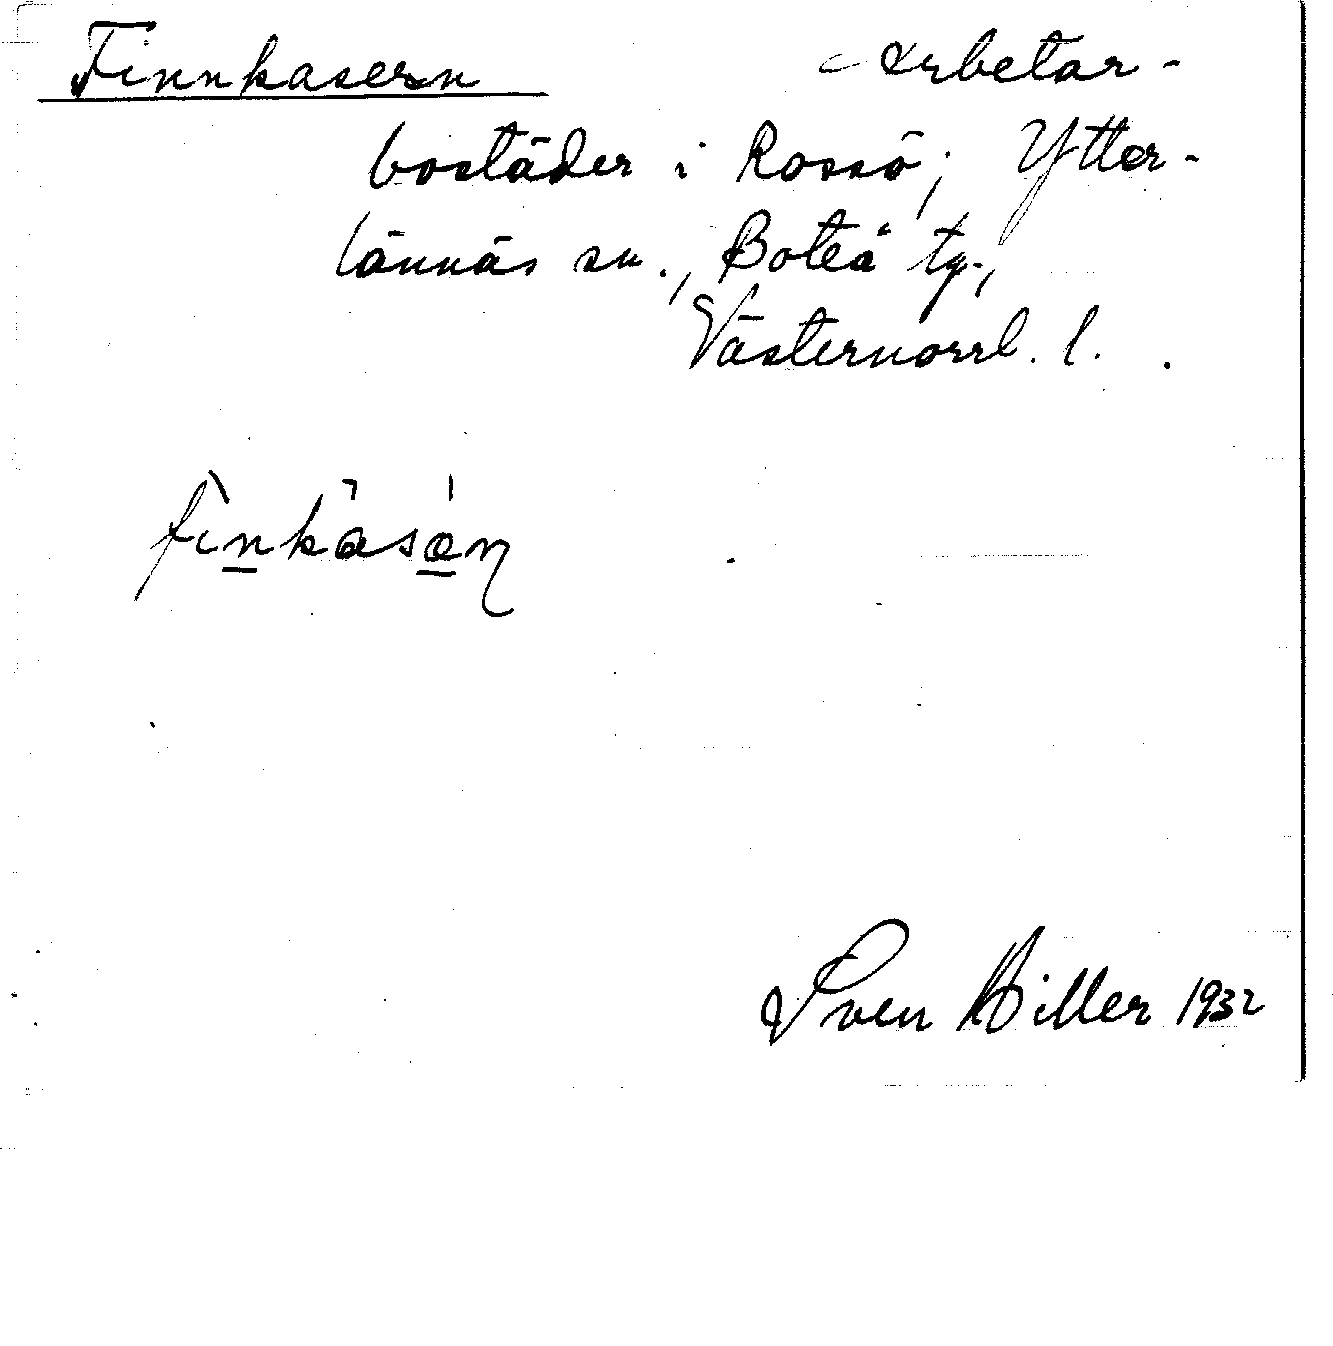 Finnkasern arbetar-
bostäder i Rossö, Ytter-
lännäs sn., Boteå tg.,
Västernorrl. l.
Sven Hiller 1932